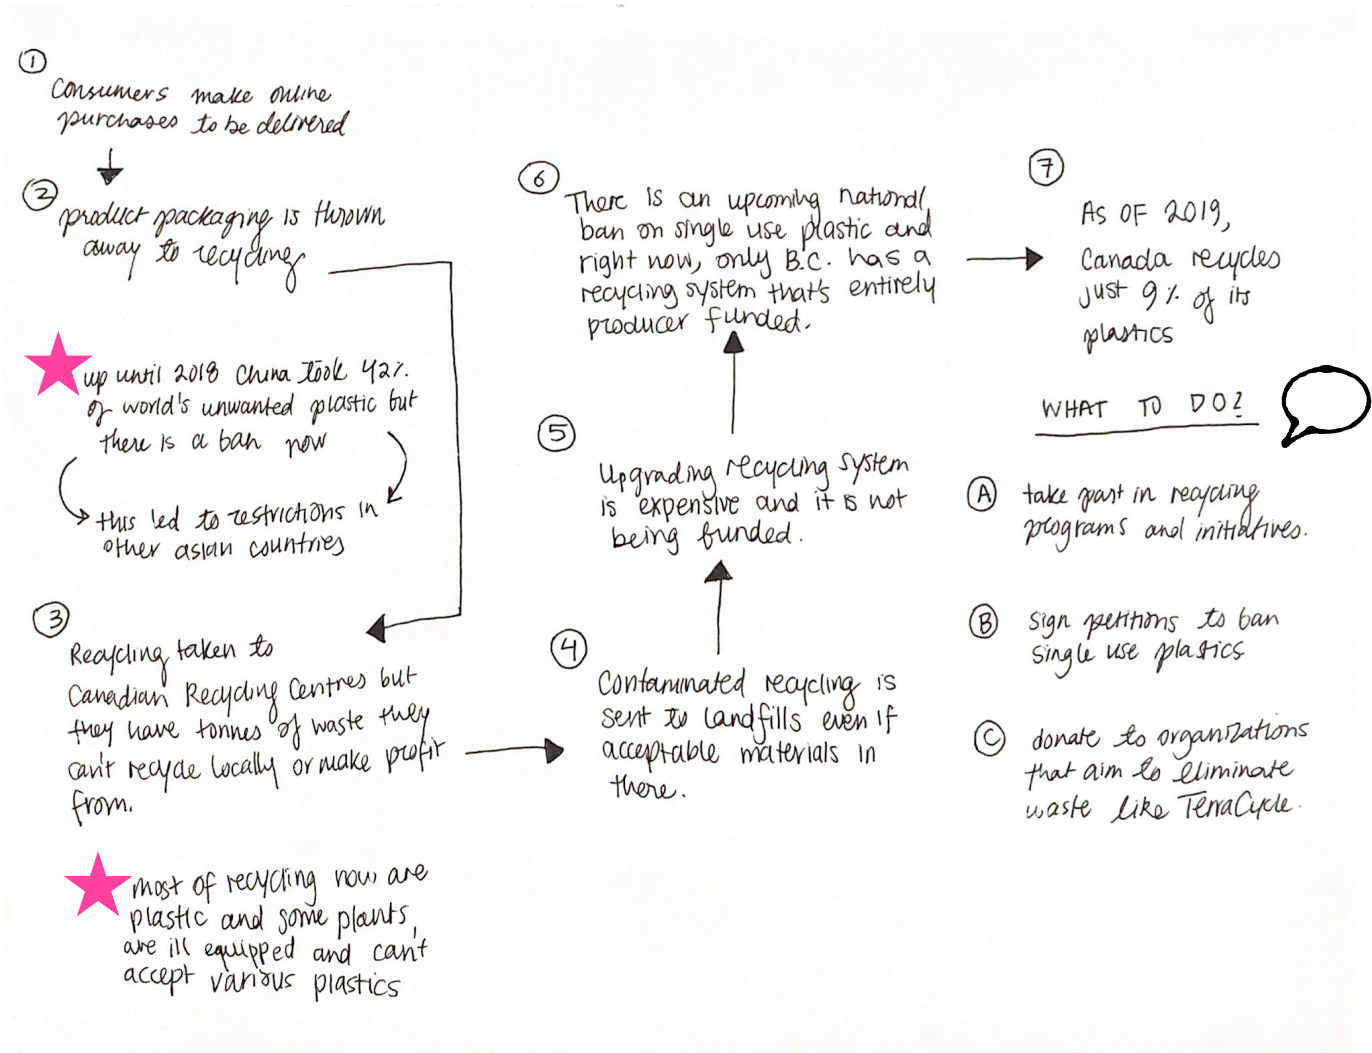 1
Consumers make online
purchases to be delivered
2
product packaging is thrown
away to recycling
up until 2018 China took 42%
of world's unwanted plastic but
there is a ban now
this led to restrictions in
other asian countries
3
Recycling taken to
Canadian Recycling Centres but
they have tonnes of waste they
can't recycle locally or make profit
from.
most of recycling now are
plastic and some plants,
are ill equipped and can't
accept various plastics
4
Contaminated recycling is
sent to landfills even if
acceptable materials in
there.
5
Upgrading recycling system
is expensive and it is not
being funded.
6
There is an upcoming national
ban on single use plastic and
right now, only B.C. has a
recycling system that's entirely
producer funded.
7
As OF 2019,
Canada recycles
just 9% of its
plastics
WHAT TO DO?
A
take part in recycling
programs and initiatives.
B
sign petitions to ban
single use plastics
C
donate to organizations
that aim to eliminate
waste like TerraCycle.